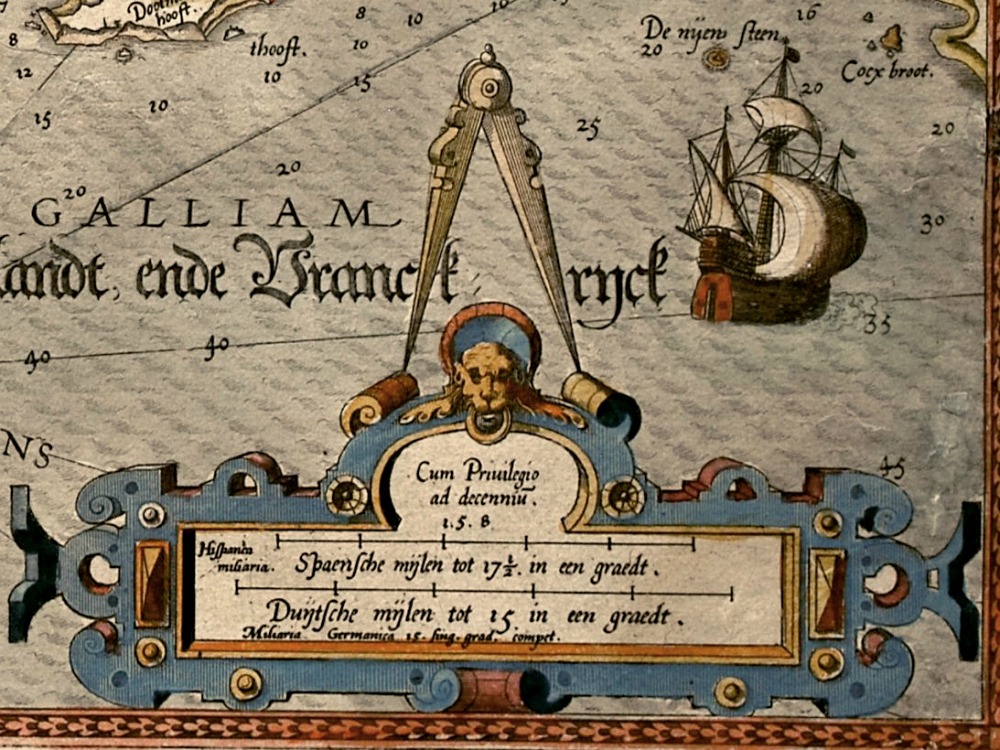 hooft.
8
10
10
16
De nijen steen
20
8
thooft.
10
Cocx broot.
12
10
15
20
15
10
25
20
20
20
30
GALLIAM
landt, ende Vranckryck
35
40
40
NS
45
Cum Priuilegio
ad decenniū.
1.5.8
Hispanica
miliaria.
Spaensche mijlen tot 17½. in een graedt.
Duijtsche mijlen tot 15 in een graedt.
Miliaria Germanica 15. sing. grad. compet.